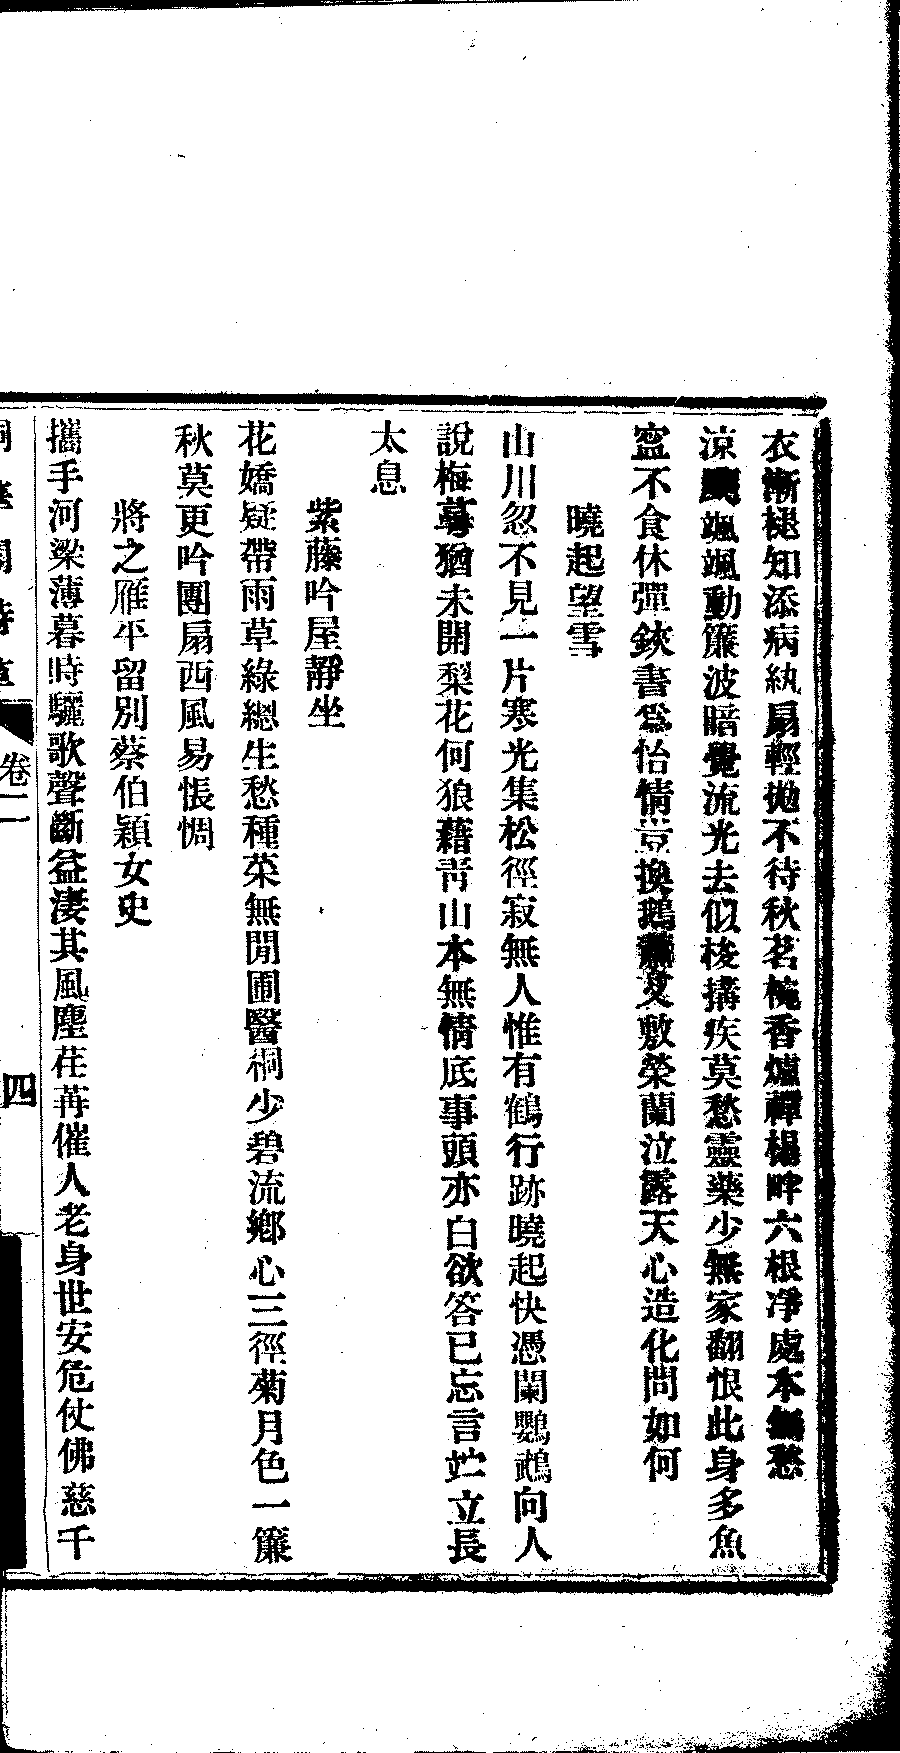 衣漸褪知添病紈扇輕拋不待秋茗椀香爐禪榻畔六根淨處本無愁
涼颸颯颯動簾波暗覺流光去似梭搆疾莫愁靈藥少無家翻恨此身多魚
寍不食休彈鋏書爲怡情豈換鵝蕭艾敷榮蘭泣露天心造化問如何
曉起望雪
山川忽不見一片寒光集松徑寂無人惟有鶴行跡曉起快憑闌鸚鵡向人
說梅萼猶未開梨花何狼藉靑山本無情底事頭亦白欲答已忘言竚立長
太息
紫藤吟屋靜坐
花嬌疑帶雨草綠總生愁種菜無閒圃醫桐少碧流鄉心三徑菊月色一簾
秋莫更吟團扇西風易悵惆
將之雁平留別蔡伯穎女史
攜手河梁薄暮時驪歌聲斷益淒其風塵荏苒催人老身世安危仗佛慈千
卷二
四